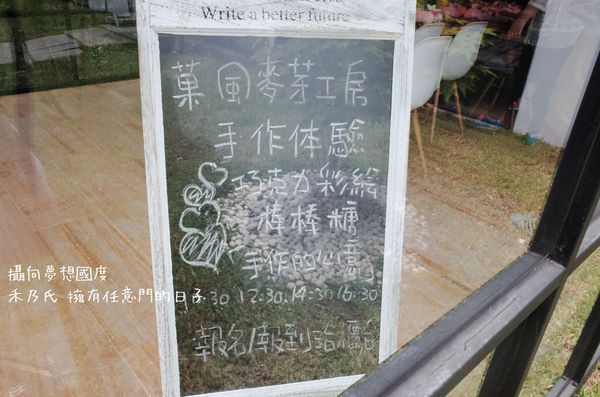 Write a better future
菓風麥芽工房
手作体驗
巧克力彩繪
棒棒糖
手作的心意
12:30.14:30.16:30
報名/報到諮詢
攝向夢想國度
禾乃氏 擁有任意門的日子